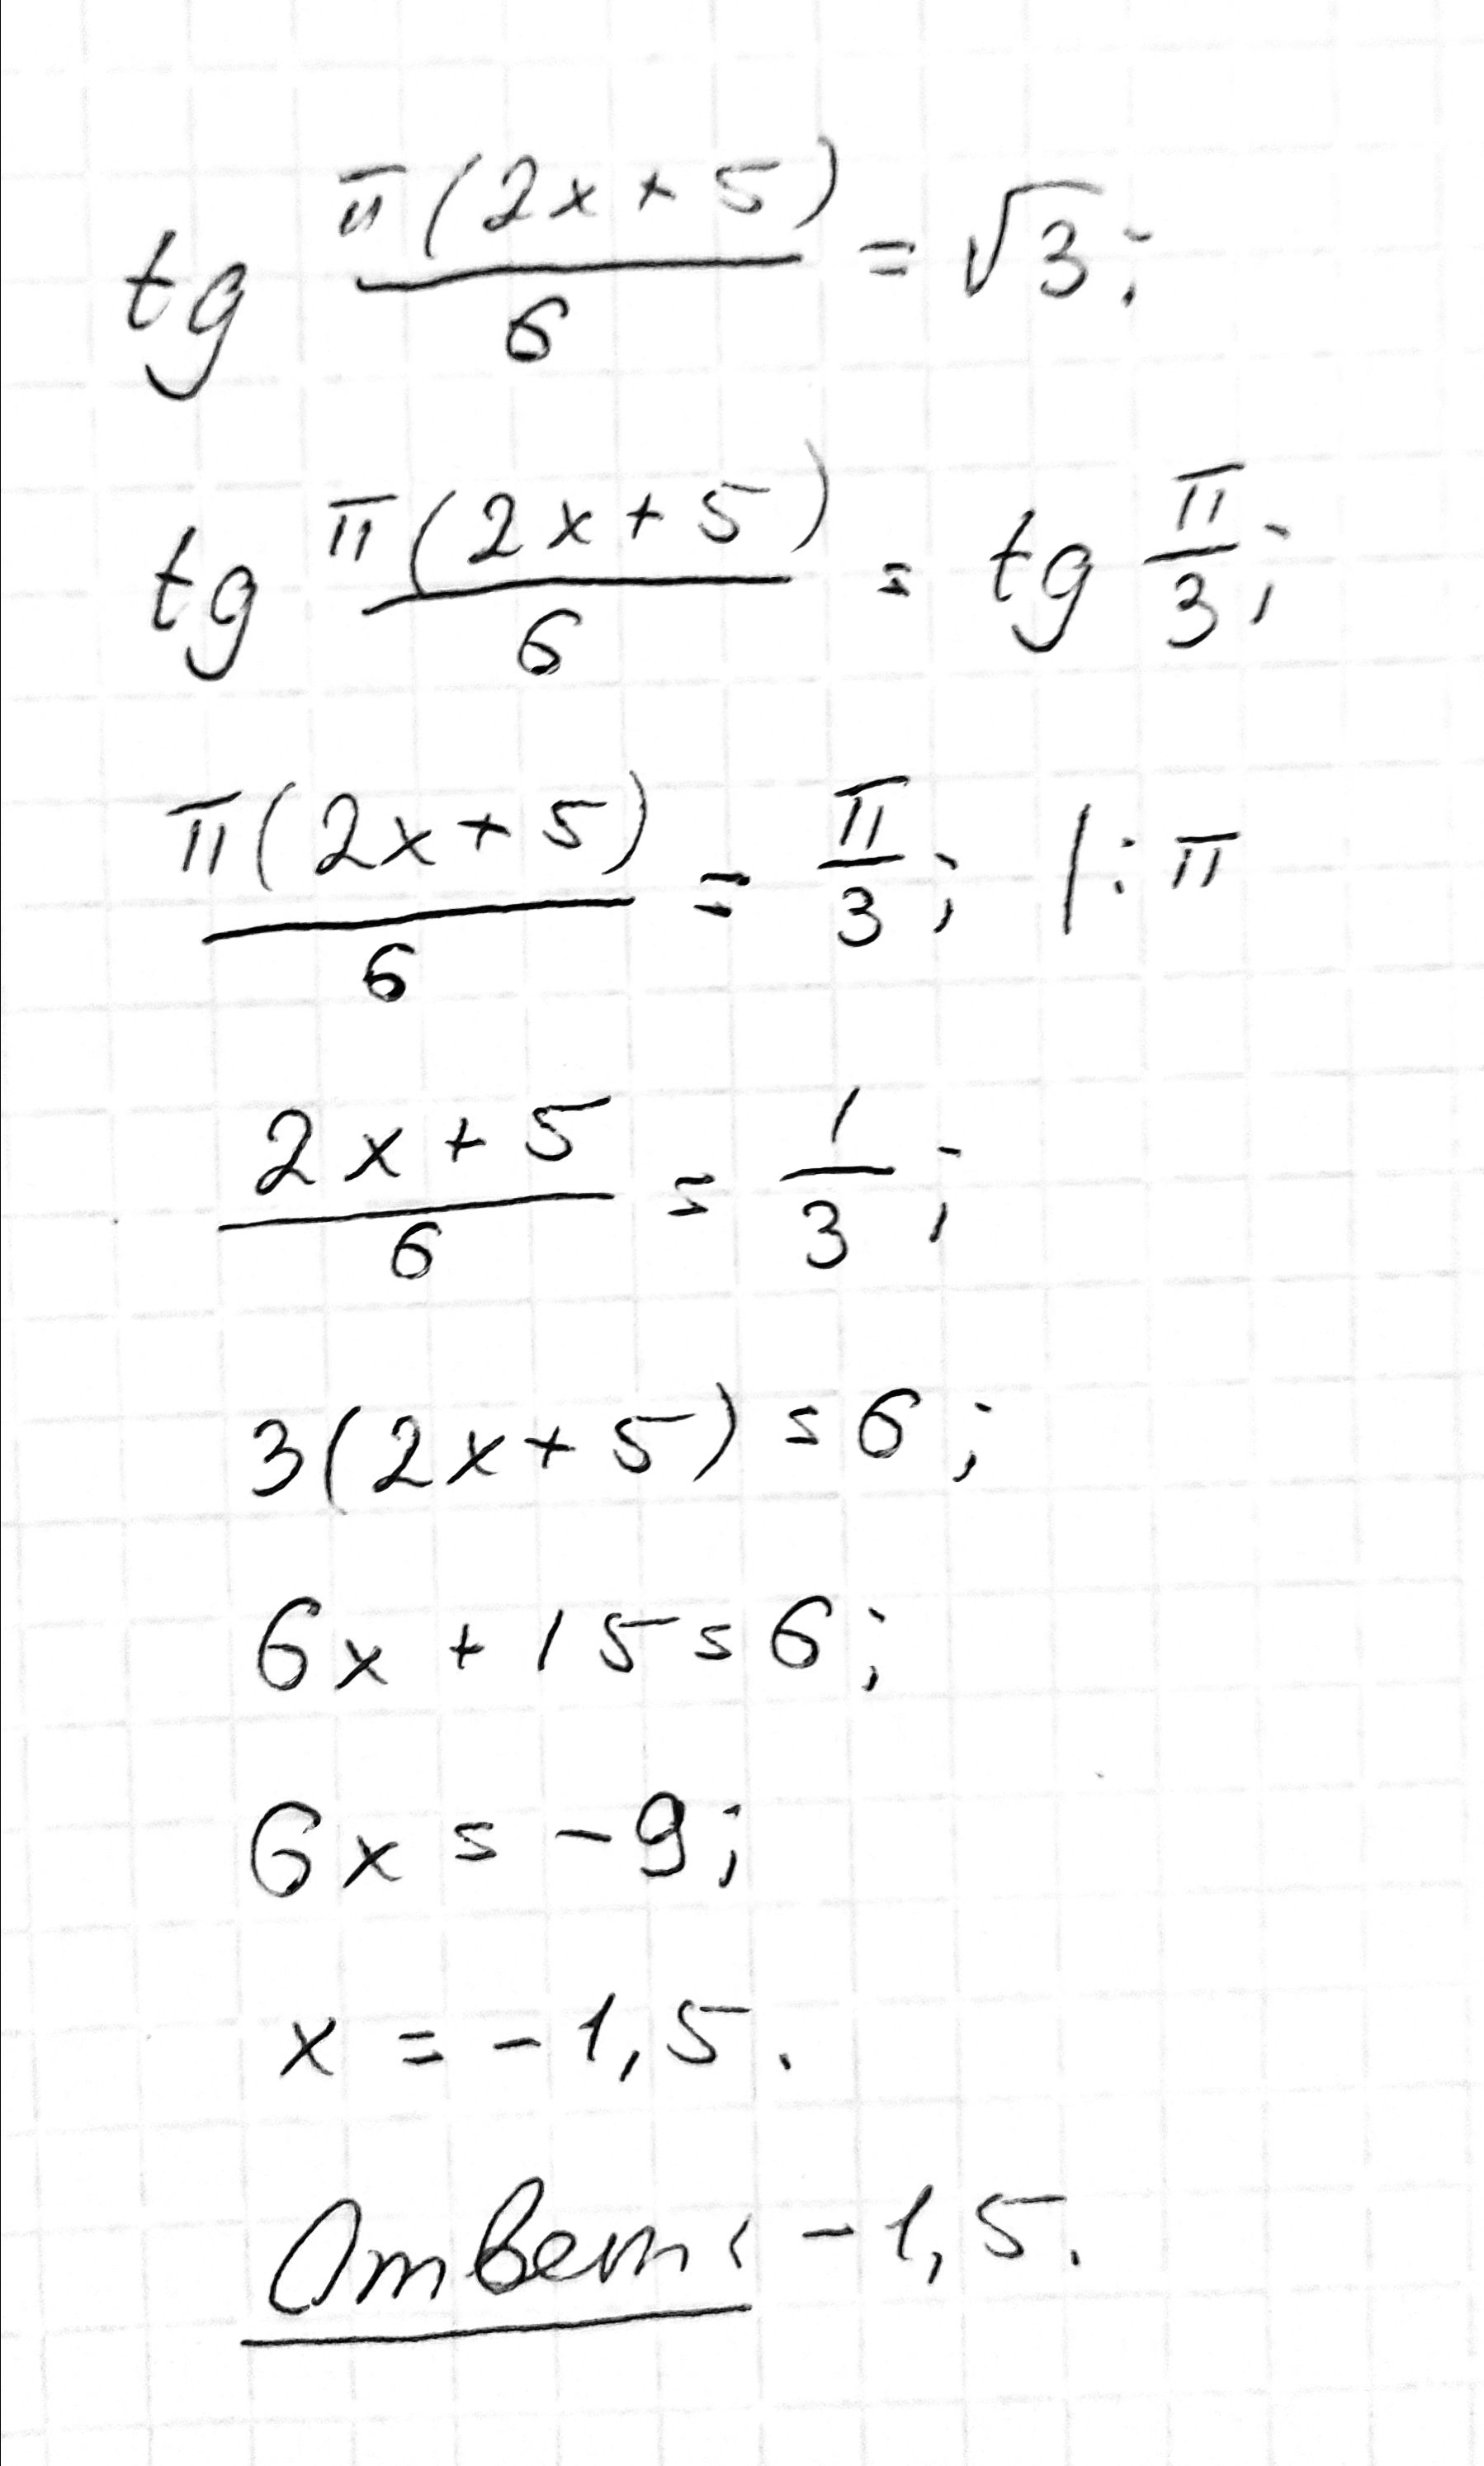 tg π(2x+5)/6 = √3;
tg π(2x+5)/6 = tg π/3;
π(2x+5)/6 = π/3; |:π
2x+5/6 = 1/3;
3(2x+5)=6;
6x+15=6;
6x=-9;
x=-1,5.
Ответ: -1,5.